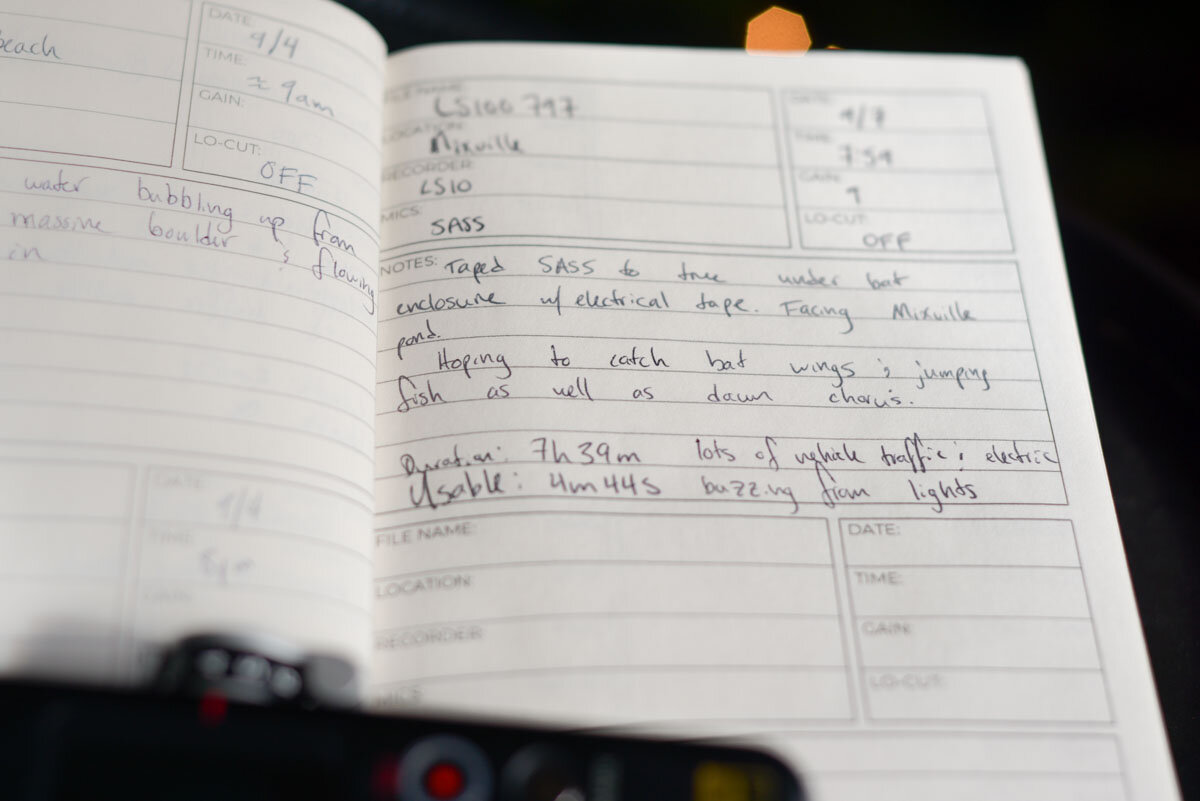 beach
DATE: 9/4
TIME: ≈ 9am
GAIN:
LO-CUT: OFF
water bubbling up from
massive boulder & flowing
in
DATE:
TIME:
FILE NAME: LS100797
LOCATION: Mixville
RECORDER: LS10
MICS: SASS
DATE: 9/7
TIME: 7:59
GAIN: 9
LO-CUT: OFF
NOTES: Taped SASS to tree under bat
enclosure w/ electrical tape. Facing Mixville
pond.
Hoping to catch bat wings & jumping
fish as well as dawn chorus.
Duration: 7h 39m lots of vehicle traffic & electric
Usable: 4m 44s buzzing from lights
FILE NAME:
LOCATION:
RECORDER:
MICS
DATE:
TIME:
GAIN:
LO-CUT: